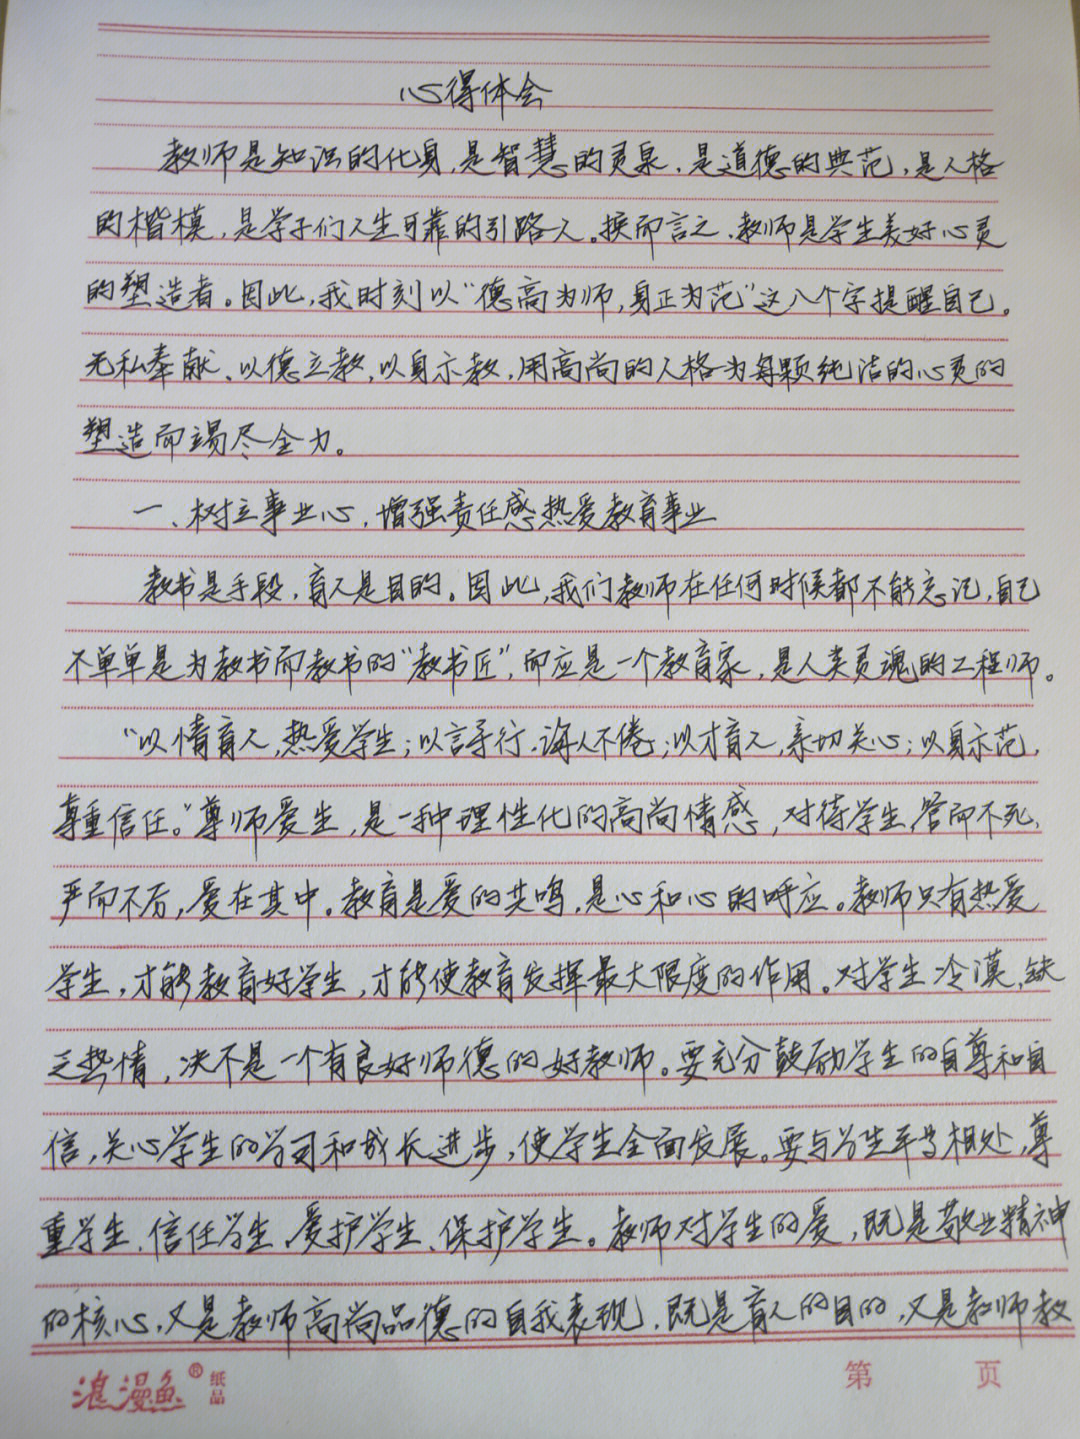 心得体会
教师是知识的化身,是智慧的灵泉,是道德的典范,是人格
的楷模,是学子们人生可靠的引路人。换而言之,教师是学生美好心灵
的塑造者。因此,我时刻以“德高为师,身正为范”这八个字提醒自己。
无私奉献、以德立教,以身示教,用高尚的人格为每颗纯洁的心灵的
塑造而竭尽全力。
一、树立事业心,增强责任感热爱教育事业
教书是手段,育人是目的。因此,我们教师在任何时候都不能忘记,自己
不单单是为教书而教书的“教书匠”,而应是一个教育家,是人类灵魂的工程师。
“以情育人,热爱学生;以言导行,诲人不倦;以才育人,亲切关心;以身示范,
尊重信任。”尊师爱生,是一种理性化的高尚情感,对待学生,管而不死,
严而不厉,爱在其中。教育是爱的共鸣,是心和心的呼应。教师只有热爱
学生,才能教育好学生,才能使教育发挥最大限度的作用。对学生冷漠,缺
乏热情,决不是一个有良好师德的好教师。要充分鼓励学生的自尊和自
信,关心学生的学习和成长进步,使学生全面发展。要与学生平等相处,尊
重学生、信任学生、爱护学生、保护学生。教师对学生的爱,既是敬业精神
的核心,又是教师高尚品德的自我表现,既是育人的目的,又是教师教
浪漫鱼®纸品
第 页